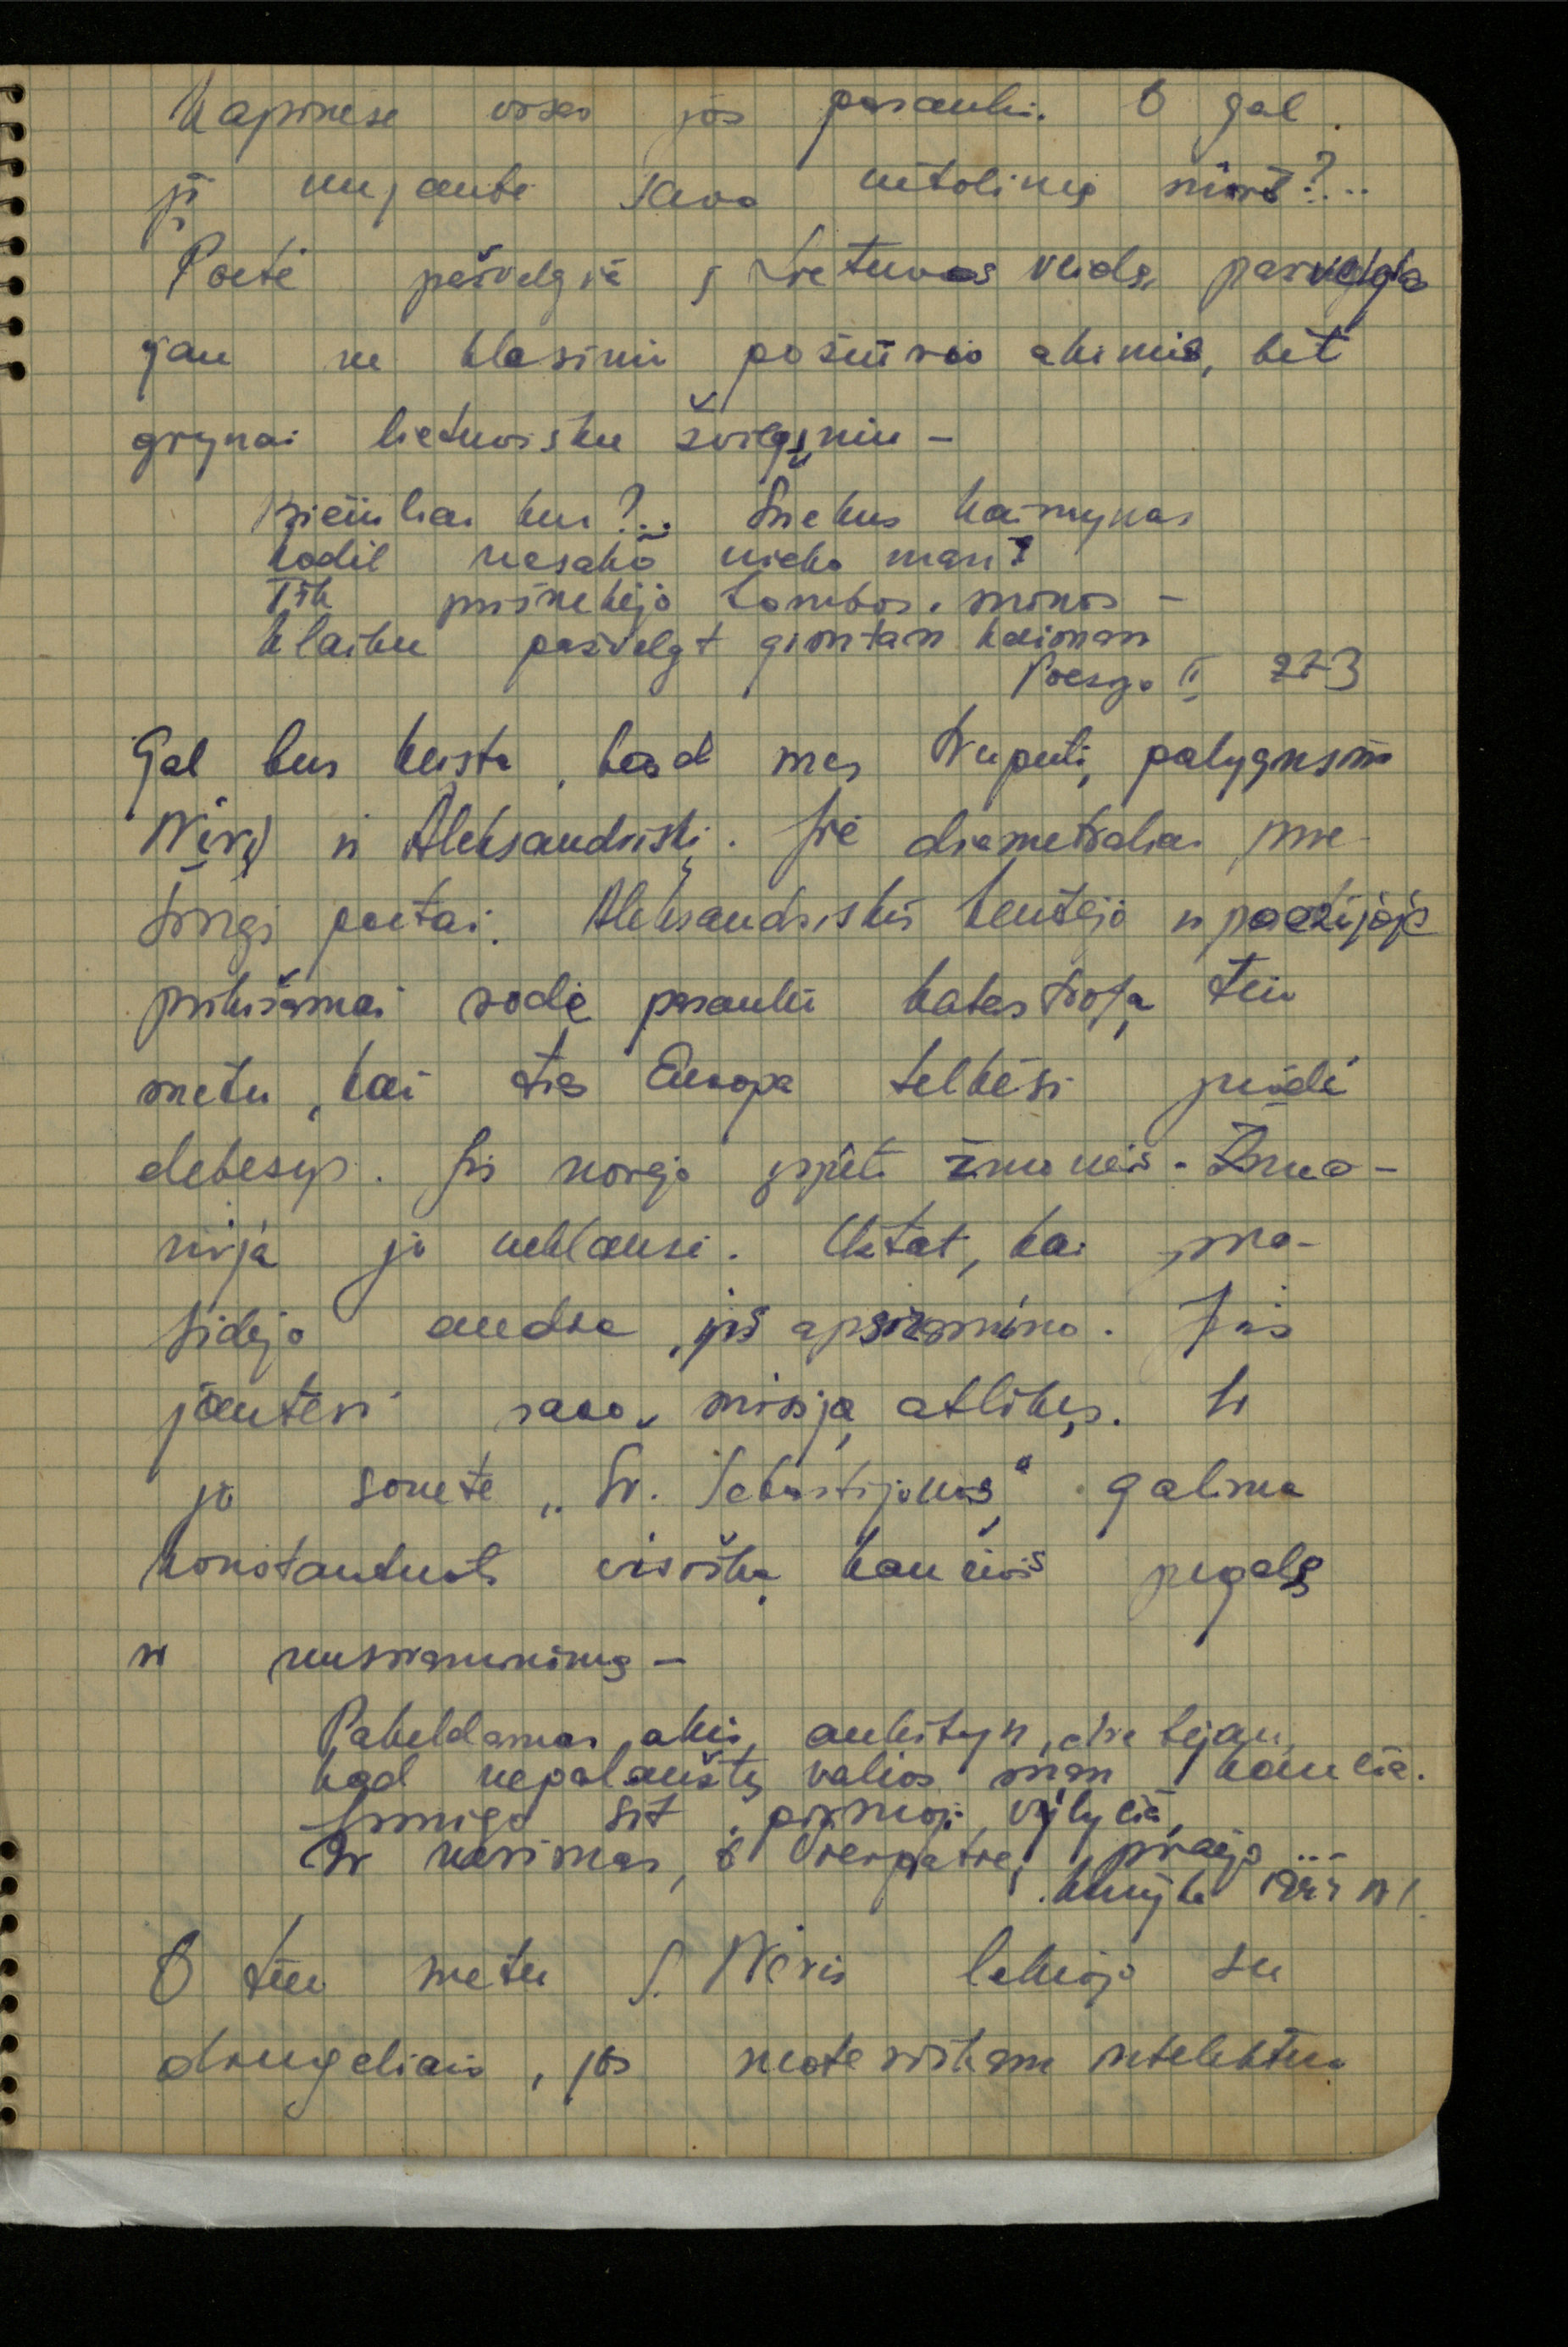 Kapinėse viso jos pasaulis. O gal
ji nujautė savo netolimą mirtį?...
Poetė pažvelgia į Lietuvos veidą, pažvelgia
jau ne klasiniu požiūrio akimis, bet
grynai lietuvišku žvilgsniu –
Kiemeliai kur?.. Sniekus kaimynas
kodėl nesako nieko man?
Tik prišnekėjo bombos, minos –
klaiku pažvelgt gimtan kaiman
Poezija II 273
Gal bus keista, kad mes truputį palyginsim
Nėrį ir Aleksandriškį. Šie diametraliai prie-
šingi poetai. Aleksandriškis kentėjo ir poezijoje
prikišamai rodė pasaulio katastrofą tuo
metu, kai ties Europa telkėsi juodi
debesys. Jis norėjo įspėti žmones. Žmo-
nija jo neklausė. Užtat, kai pra-
sidėjo audra, jis apsiramino. Jis
jautėsi savo misiją atlikęs. Ir
jo sonete „Šv. Sebastijonas“ galima
konstatuoti visišką kančios pergalę
ir nusiraminimą –
Pakeldamas akis aukštyn, drebėjau,
kad nepalaužtų valios man kančia.
Susmigo šit pirmoji vylyčia,
Ir nerimas, o Viešpatie, praėjo...
O tuo metu S. Nėris lakiojo su
drugeliais, jos moteriškam intelektui